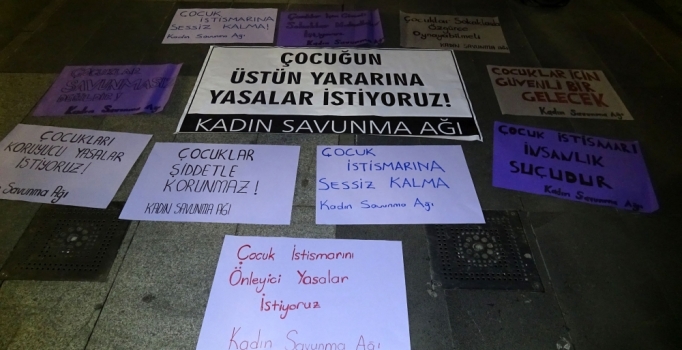 ÇOCUK
İSTİSMARINA
SESSİZ KALMA!
Kadın Savunma Ağı
Kadın Savunma Ağı
Çocuklar Sokaklarda
Oynayabilmeli
KADIN SAVUNMA AĞI
ÇOCUKLAR
SAVUNMASIZ
Kadın Savunma Ağı
ÇOCUĞUN
ÜSTÜN YARARINA
YASALAR İSTİYORUZ!
KADIN SAVUNMA AĞI
ÇOCUKLAR İÇİN
GÜVENLİ BİR
GELECEK
Kadın Savunma Ağı
ÇOCUKLARI
KORUYUCU YASALAR
İSTİYORUZ!
Savunma Ağı
ÇOCUKLAR
ŞİDDETLE
KORUNMAZ!
KADIN SAVUNMA AĞI
ÇOCUK
İSTİSMARINA
SESSİZ KALMA
Kadın Savunma Ağı
ÇOCUK İSTİSMARI
İNSANLIK
SUÇUDUR
Kadın Savunma Ağı
Çocuk İstismarını
Önleyici Yasalar
İstiyoruz
Kadın Savunma Ağı